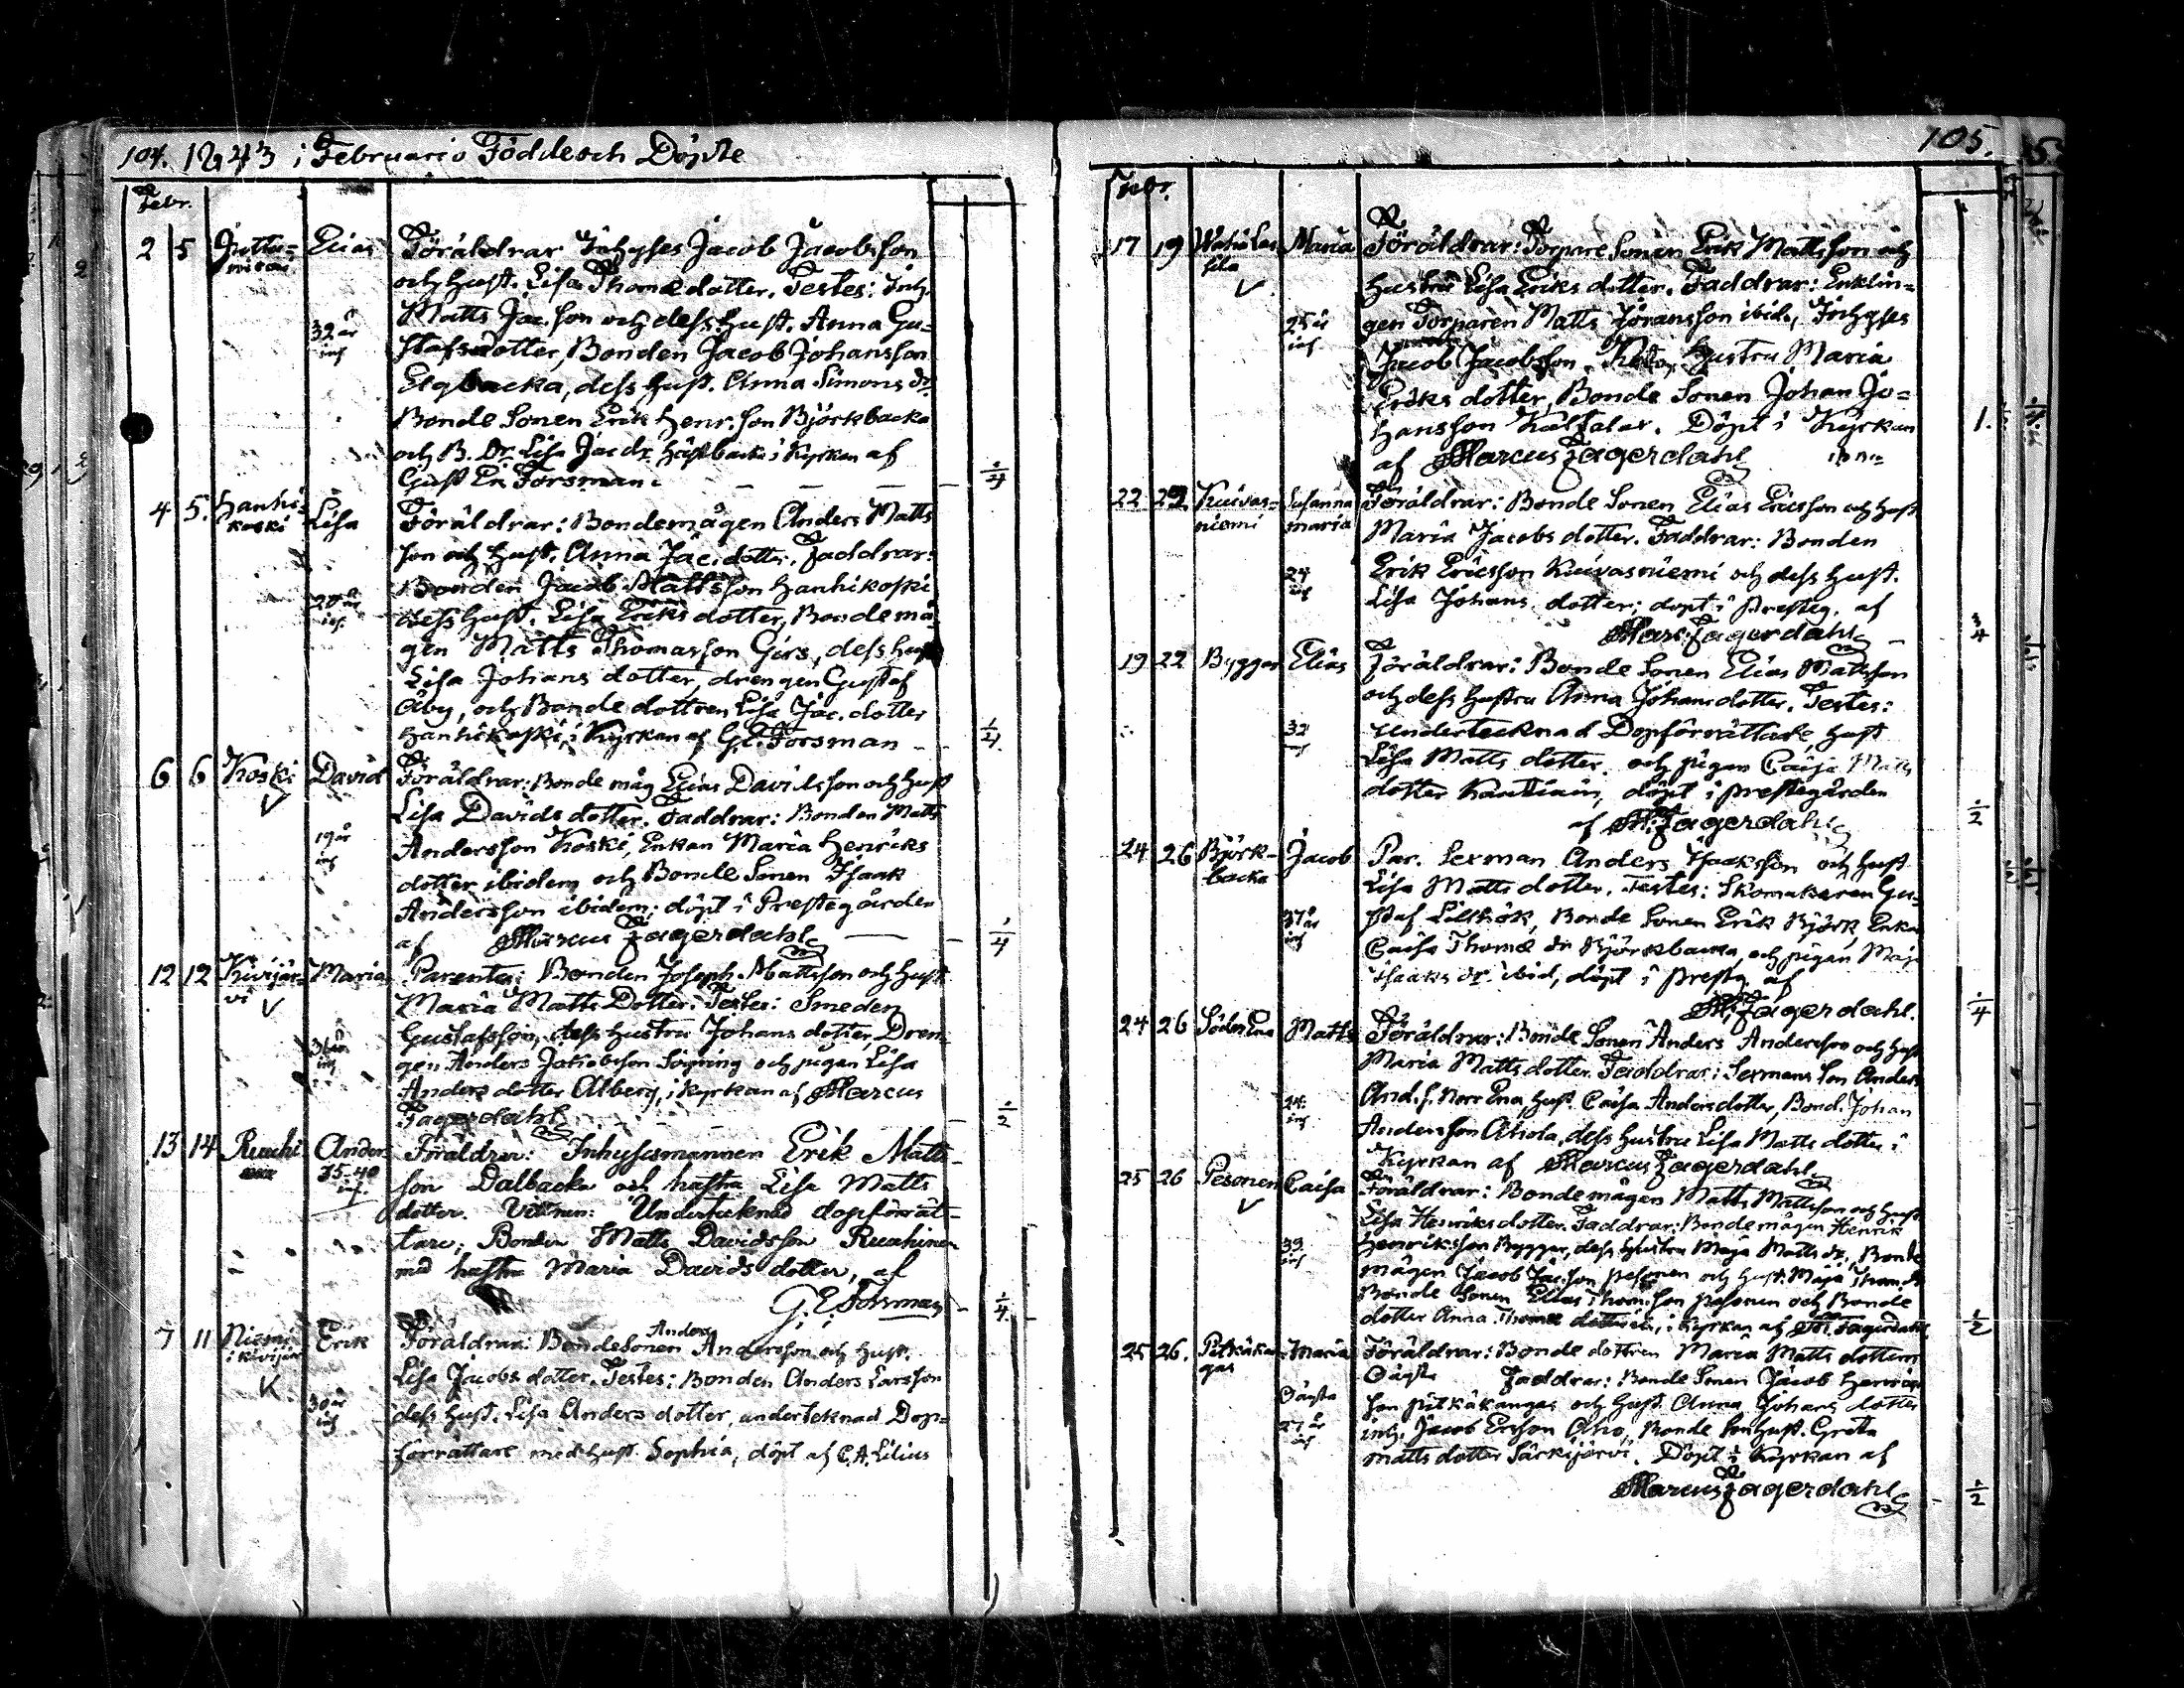 104. 1843 i Februario Födde och Döpte
Febr.
2 5 Elias Föräldrar Inhyses Jacob Jacobsson
och hust. Lisa Thomædotter. Testes: Inh.
Matts Jac.son och dess hust. Anna Gu=
32 år stafsdotter, Bonden Jacob Johansson
Elgbacka, dess hust. Anna Simons dr.
Bonde Sonen Erik Henr.son Björkbacka
och B. Dr. Lisa Jac dr. i Kyrkan af
Gust En Forsman
4 5. Hanhi=
koski Lisa Föräldrar: Bondemågen Anders Matts
son och hust. Anna Jac. dotter. Faddrar:
Bonden Jacob Mattsson Hanhikoski
dess hust. Lisa Eriks dotter, Bonde må
gen Matts Thomasson Girs, dess hust
Lisa Johans dotter, drengen Gustaf
Åby, och Bonde dottren Lisa Jac. dotter
Hanhikoski, i Kyrkan af G.E. Forsman 1/4
6 6 Koski David Föräldrar: Bonde måg Elias Davidsson och hust
Lisa Davids dotter. Faddrar: Bonden Matts
19 år Andersson Koski, Enkan Maria Henriks
dotter ibidem och Bonde Sonen Isaak
Andersson ibidem; döpt i Prestegården
af Marcus Fagerdahl 1/4
12 12 Kivijär=
vi Maria Parentes: Bonden Joseph Mattsson och hust
Maria Matts Dotter. Testes: Smeden
Gustafsson, dess hustru Johans dotter, Dren=
gen Anders Jakobsson och pigan Lisa
Anders dotter Alberg, i kyrkan af Marcus
Fagerdahl 1/2
13 14 Anders Föräldrar: Inhysesmannen Erik Matts=
35-40 son Dalbacka och hustru Lisa Matts
dotter. Vittnen: Undertecknad dopförrät=
tare; Bonden Matts Davidsson
med hustru Maria Davids dotter, af
G. E. Forsman 1/4
7 11 Niemi
i kivijär Erik Föräldrar: Bondesonen Anders Andersson och hust.
Lisa Jacobs dotter. Testes: Bonden Anders Larsson
30 år dess hust. Lisa Anders dotter, underteknad Dop=
förrättare med hust. Sophia, döpt af C. A. Lilius
105.
Febr.
17 19 Maria Föräldrar: Torpare Sonen Erik Mattsson och
hustru Lisa Eriks dotter. Faddrar: Enklin=
25 år gen Torparen Matts Jöransson ibid., Inhyses
Jacob Jacobsson, hustru Maria
Eriks dotter, Bonde Sonen Johan Jo=
hansson Kaltalar. Döpt i Kyrkan 1.
af Marcus Fagerdahl
22 22 Kuivas=
niemi Susanna
maria Föräldrar: Bonde Sonen Elias Ericsson och hust
Maria Jacobs dotter. Faddrar: Bonden
24 Erik Ericsson Kuivasniemi och dess hust.
Lisa Johans dotter; döpt i presteg. af
Marc. Fagerdahl 3/4
19 22 Byggar Elias Föräldrar: Bonde Sonen Elias Mattsson
och dess hustru Anna Johans dotter. Testes:
32 Undertecknad Dopförrättare, hust
Lisa Matts dotter, och pigan Caisa Matts
dotter, döpt i prestegården
af M. Fagerdahl 1/2
24 26 Björk-
backa Jacob Par. Sexman Anders Isaaksson och hust
Lisa Matts dotter. Testes: Skomakaren Gu=
37 år staf Lillhök, Bonde Sonen Erik Björk, Enka
Caisa Thomæ dr Björkbacka, och pigan Maja
Isaaks dr. ibid, döpt i prestg. af
M. Fagerdahl. 1/4
24 26 Söder Ena Matts Föräldrar: Bonde Sonen Anders Andersson och hust
Maria Matts dotter. Faddrar: Sexmans Son Anders
24 And.s. Norr Ena, hust. Caisa Anders dotter, Bond. Johan
Andersson Ahola, dess hustru Lisa Matts dotter i
Kyrkan af Marcus Fagerdahl
25 26 Pesonen Caisa Föräldrar: Bondemågen Matts Mattsson och hust
Lisa Henriks dotter. Faddrar: Bondemågen Henrik
39 Henriksson Byggar, dess hustru Maja Matts dr., Bonde
mågen Jacob Jac.son pesonen och hust. Maja Thom dr
Bonde Sonen Elias Thom.son pesonen och Bonde
dotter Anna Thomæ dotter, i Kyrkan af M. Fagerdahl 1/2
25 26. Pitkäkan
gas Maria Föräldrar: Bonde dottren Maria Matts dotter
Oägta Faddrar: Bonde Sonen Jacob Herman
Oägta son pitkäkangas och hust. Anna Johans dotter
27 år inh. Jacob Ersson Aho, Bonde Son hust. Greta
matts dotter Särkijärvi. Döpt i Kyrkan af
Marcus Fagerdahl 1/2